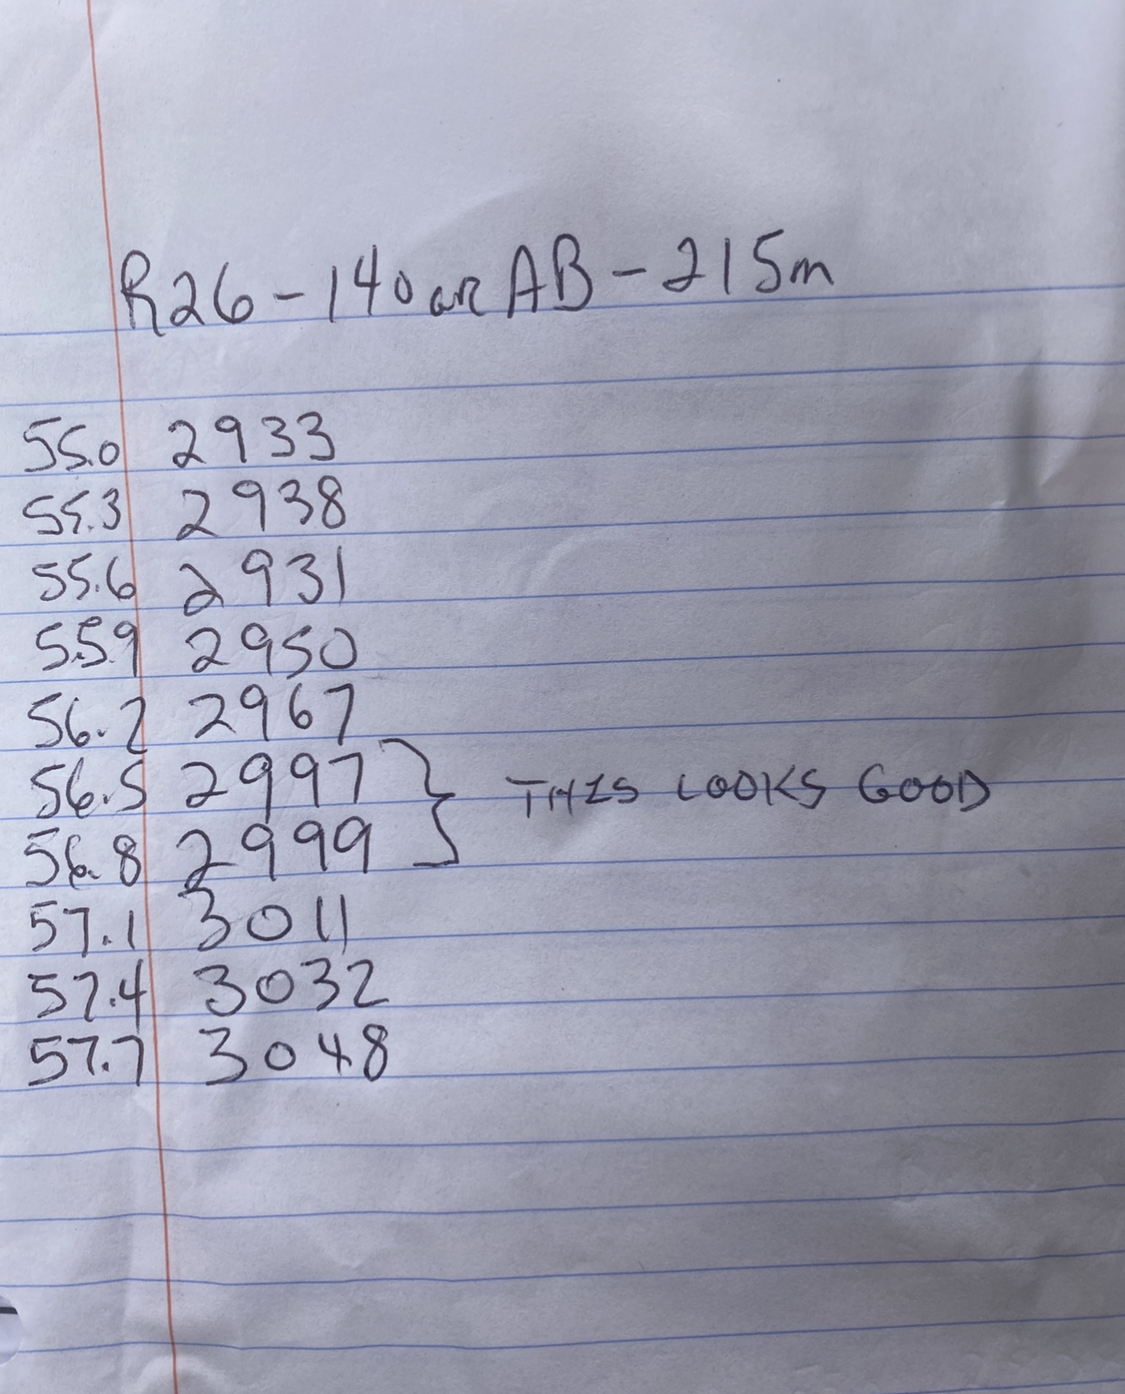 R26-140GR AB-215m
55.0 2933
55.3 2938
55.6 2931
55.9 2950
56.2 2967
56.5 2997
56.8 2999
THIS LOOKS GOOD
57.1 3011
57.4 3032
57.7 3048